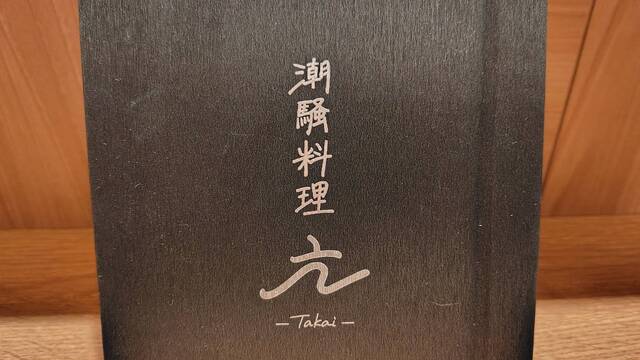 潮騒料理
亢
– Takai –